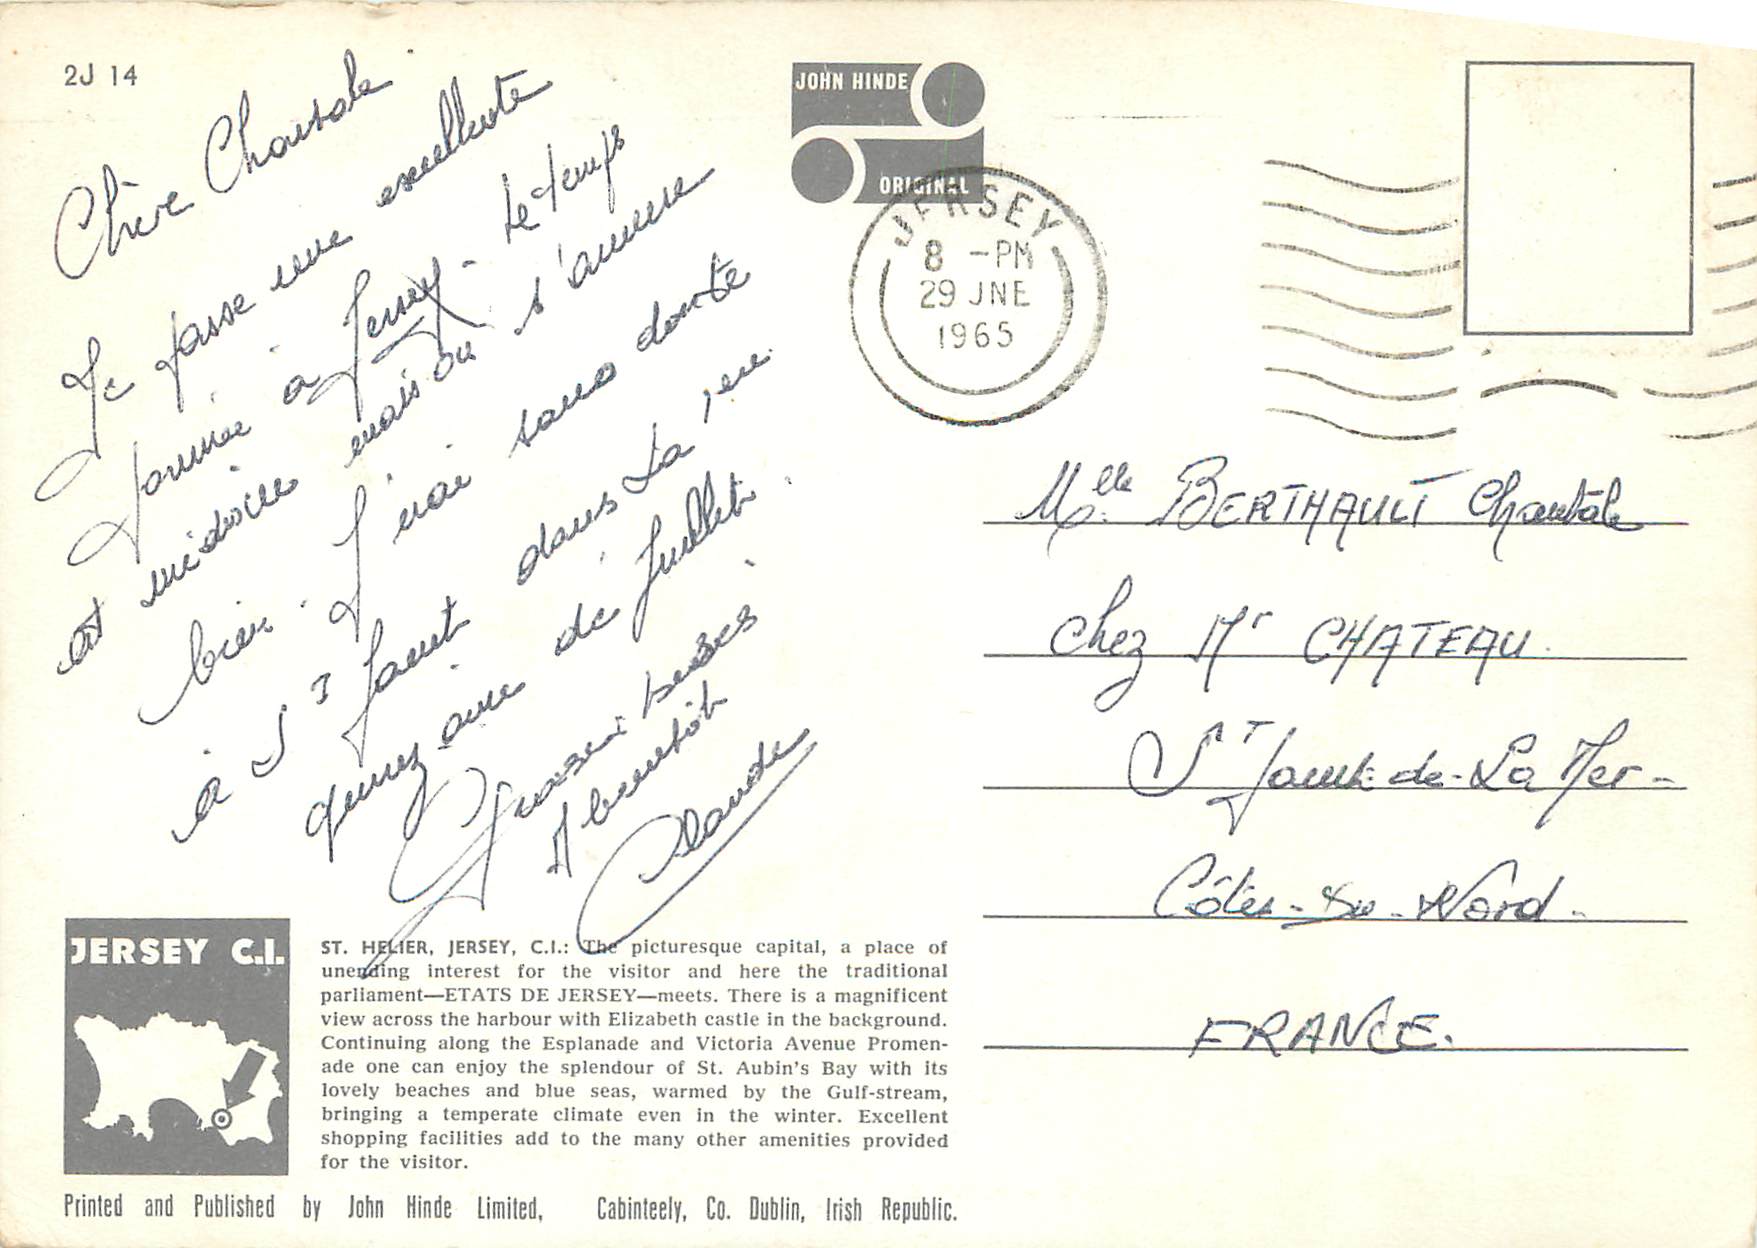 2J 14
Chère Chantale
Je passe une excellente
journée à Jersey. Le temps
est médiocre mais on s'amuse
bien. J'irai sans doute
à St Jacut dans La 1ere
quinzaine de Juillet.
Grosses bises
A bientôt
Claude
JOHN HINDE
ORIGINAL
JERSEY
8 -PM
29 JNE
1965
Mlle BERTHAULT Chantale
chez Mr CHATEAU.
St Jacut-de-La Mer-
Côtes-du-Nord-
FRANCE.
JERSEY C.I.
ST. HELIER, JERSEY, C.I.: The picturesque capital, a place of
unending interest for the visitor and here the traditional
parliament—ETATS DE JERSEY—meets. There is a magnificent
view across the harbour with Elizabeth castle in the background.
Continuing along the Esplanade and Victoria Avenue Promen-
ade one can enjoy the splendour of St. Aubin's Bay with its
lovely beaches and blue seas, warmed by the Gulf-stream,
bringing a temperate climate even in the winter. Excellent
shopping facilities add to the many other amenities provided
for the visitor.
Printed and Published by John Hinde Limited, Cabinteely, Co. Dublin, Irish Republic.